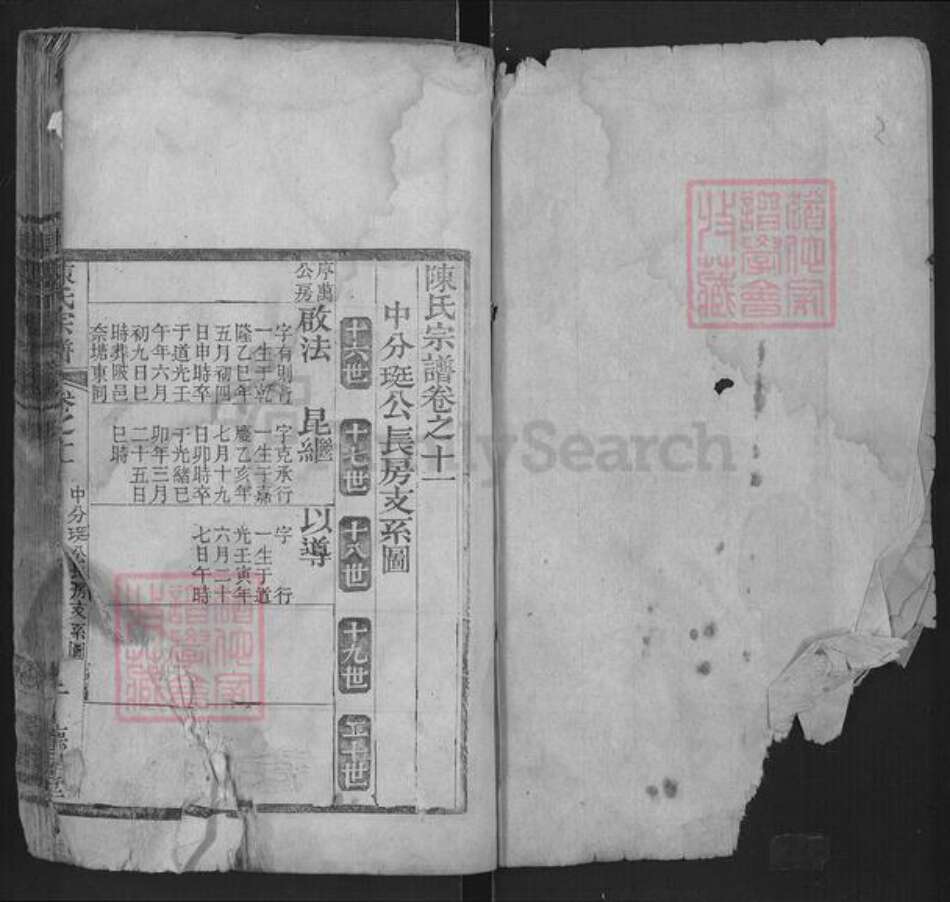 陳氏宗譜卷之十一
中分珽公長房支系圖
十六世
十七世
十八世
十九世
二十世
序萬
公房
啟法
字有則行
一生于乾
隆乙巳年
五月初四
日申時卒
于道光壬
午年六月
初九日巳
時葬
邑
奈塘東洞
昆繼
字克承行
一生于嘉
慶乙亥年
七月十九
日卯時卒
于光緒己
卯年三月
二十五日
巳時
以導
字 行
一生于道
光壬寅年
六月二十
七日午時
陳氏宗譜
卷之十一
中分珽公長房支系圖
譜學會
收藏
2
MySearch